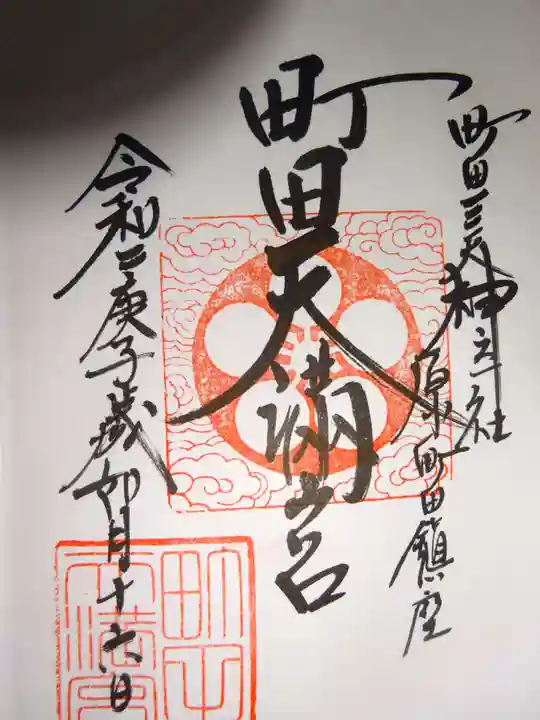 町田三天神之社
原町田鎮座
町田天満宮
令和二庚子歳卯月十六日
町田天満宮